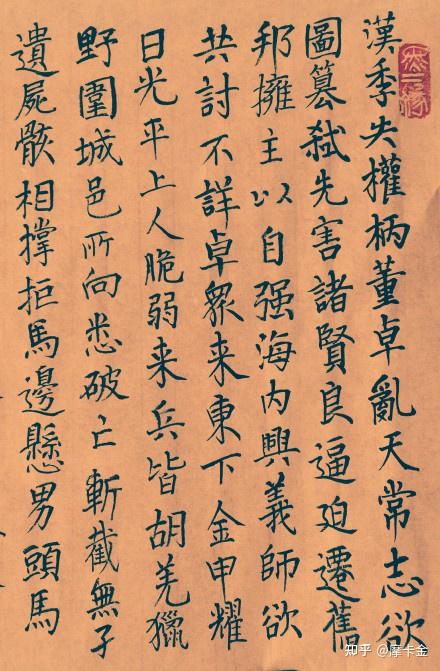 漢季失權柄董卓亂天常志欲
圖篡弑先害諸賢良逼迫遷舊
邦擁主以自强海内興義師欲
共討不詳卓眾来東下金甲耀
日光平上人脆弱来兵皆胡羌獵
野圍城邑所向悉破亡斬截無孑
遺屍骸相撑拒馬邊懸男頭馬
知乎 @摩卡金